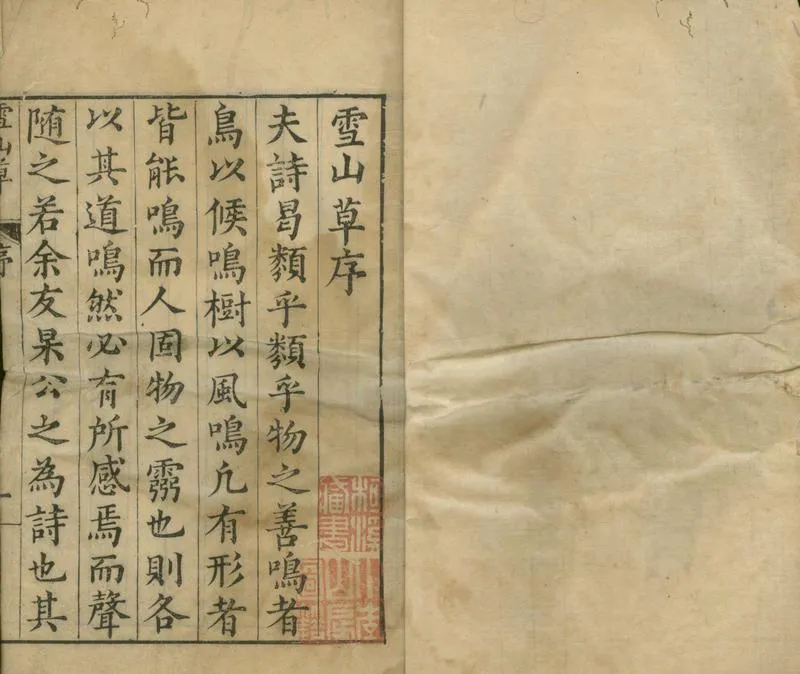 雪山草序
夫詩曷類乎類乎物之善鳴者
鳥以候鳴樹以風鳴凢有形者
皆能鳴而人固物之霛也則各
以其道鳴然必有所感焉而聲
随之若余友杲公之為詩也其
雪山草 序 一